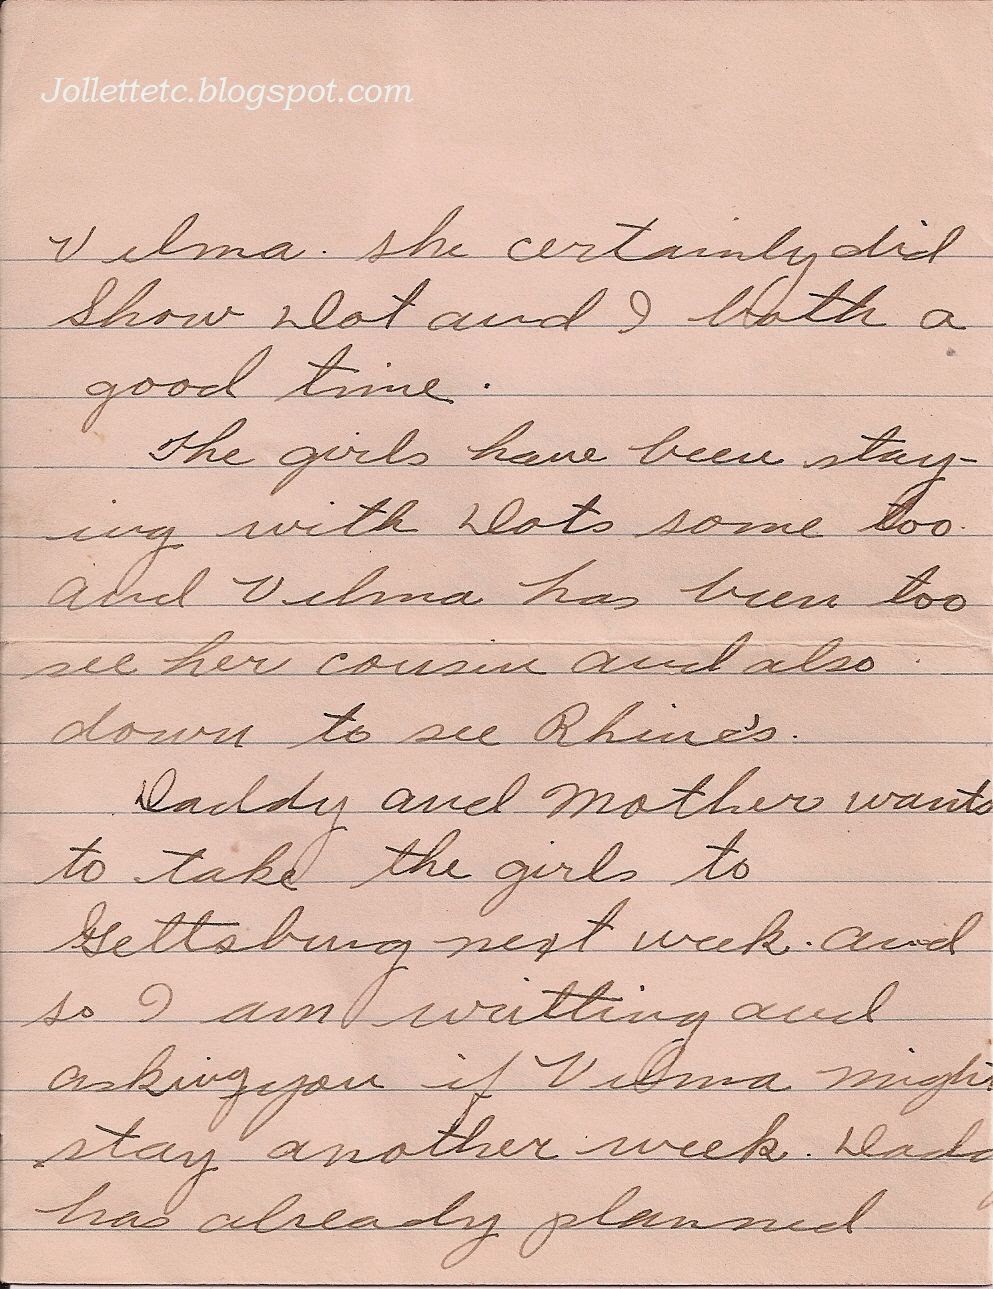 Jollettetc.blogspot.com
Velma. she certainly did
Show Dot and I both a
good time.
The girls have been stay-
ing with Dots some too.
and Velma has been too
see her cousin and also
down to see Rhine's.
Daddy and Mother wants
to take the girls to
Gettsburg next week. and
so I am writting and
asking you if Velma might
stay another week. Daddy
has already planned